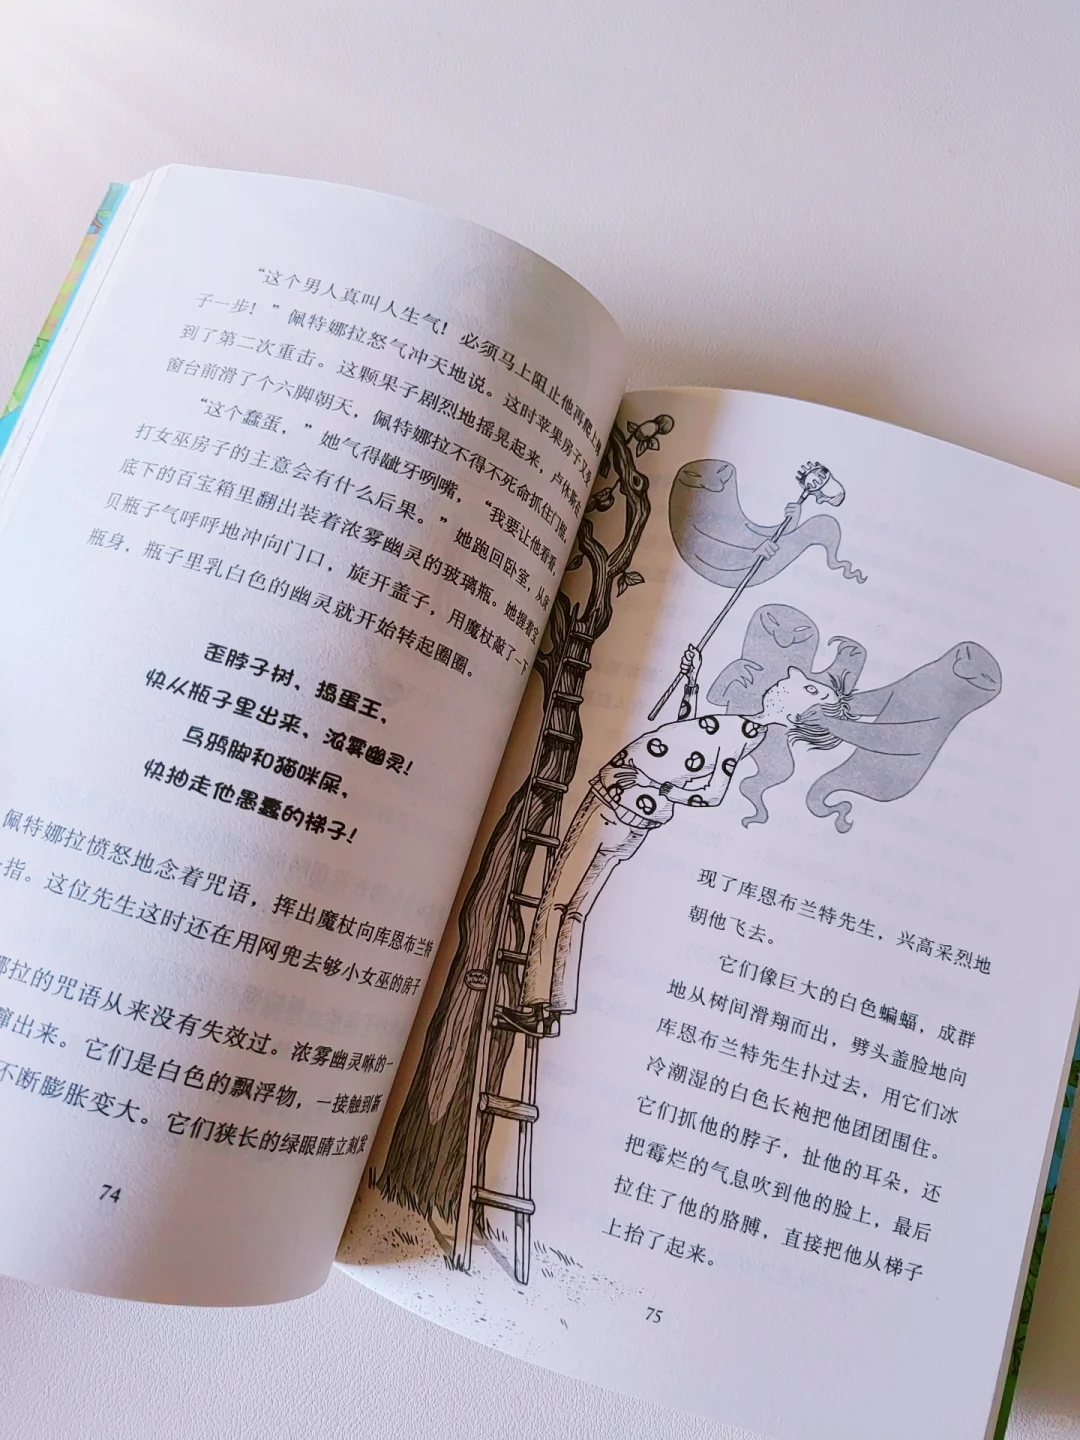 “这个男人真叫人生气！必须马上阻止他再爬上梯
子一步！”佩特娜拉怒气冲天地说。这时苹果房子又受
到了第二次重击。这颗果子剧烈地摇晃起来，卢休斯在
窗台前滑了个六脚朝天，佩特娜拉不得不死命抓住门框。
“这个蠢蛋，”她气得龇牙咧嘴，“我要让他看看，
打女巫房子的主意会有什么后果。”她跑回卧室，从床
底下的百宝箱里翻出装着浓雾幽灵的玻璃瓶。她握着宝
贝瓶子气呼呼地冲向门口，旋开盖子，用魔杖敲了一下
瓶身，瓶子里乳白色的幽灵就开始转起圈圈。
歪脖子树、捣蛋王，
快从瓶子里出来，浓雾幽灵！
乌鸦脚和猫咪屎，
快抽走他愚蠢的梯子！
佩特娜拉愤怒地念着咒语，挥出魔杖向库恩布兰特
一指。这位先生这时还在用网兜去够小女巫的房子
娜拉的咒语从来没有失效过。浓雾幽灵咻的一
窜出来。它们是白色的飘浮物，一接触到新
不断膨胀变大。它们狭长的绿眼睛立刻发
74
现了库恩布兰特先生，兴高采烈地
朝他飞去。
它们像巨大的白色蝙蝠，成群
地从树间滑翔而出，劈头盖脸地向
库恩布兰特先生扑过去，用它们冰
冷潮湿的白色长袍把他团团围住。
它们抓他的脖子，扯他的耳朵，还
把霉烂的气息吹到他的脸上，最后
拉住了他的胳膊，直接把他从梯子
上抬了起来。
75